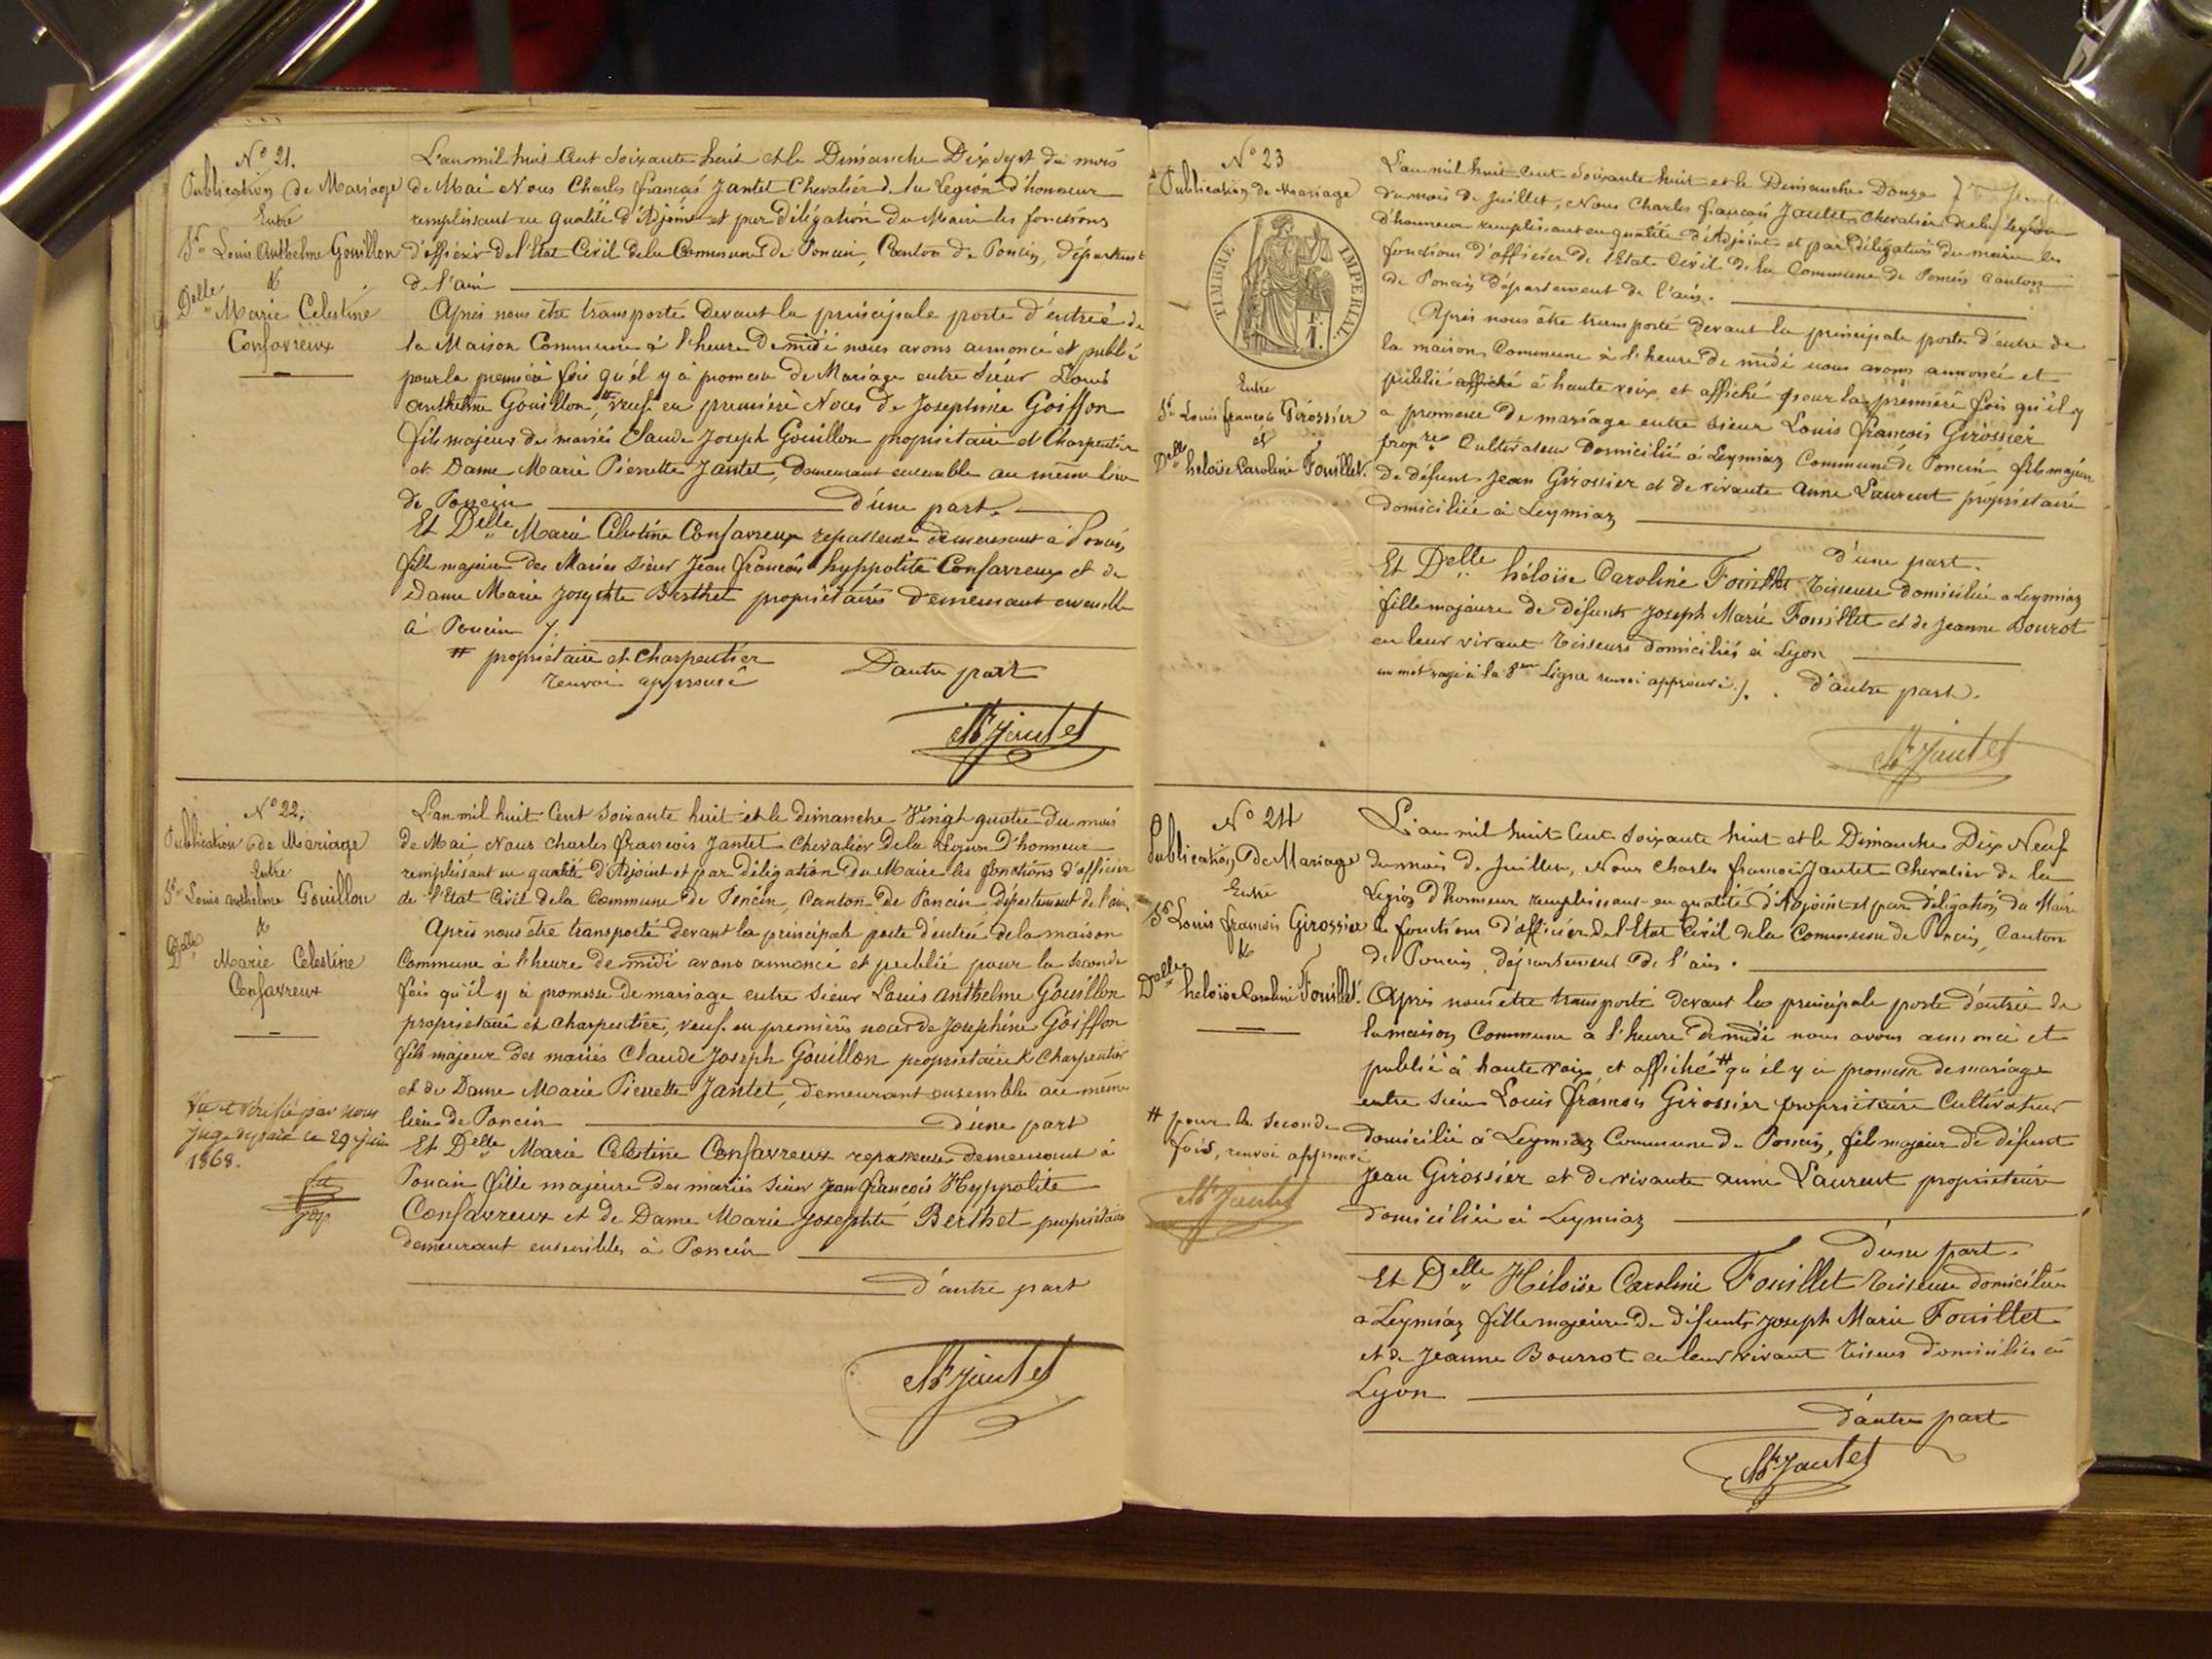 N° 21.
Publication de Mariage
Entre
Sr Louis Anthelme Gouillon
&
Delle Marie Celestine
Confavreux
L'an mil huit Cent soixante huit et le Dimanche Dix sept du mois
de Mai Nous Charles françois Jantet Chevalier de la Legion d'honneur
remplissant en qualité d'Adjoint et par délégation du Maire les fonctions
d'officier de l'Etat Civil de la Commune de Poncin, Canton de Poncin, département
de l'ain
Après nous être transporté devant la principale porte d'entreé de
la Maison Commune à l'heure de midi nous avons annoncé et publié
pour la première fois qu'il y à promesse de Mariage entre Sieur Louis
Anthelme Gouillon, # veuf en première Noces de Josephine Goiffon
fils majeur des mariés Claude Joseph Gouillon propriétaire et Charpentier
et Dame Marie Pierrette Jantet, demeurant ensemble au même lieu
de Poncin d'une part.
Et Delle Marie Célestine Confavreux repasseuse demeurant à Poncin,
fille majeure des Mariés Sieur Jean françois hyppolite Confavreux et de
Dame Marie Josephte Berthet propriétaires demeurant ensemble
à Poncin
# propriétaire et Charpentier
renvoi approuvé
D'autre part
Ch Jantet
N° 22.
Publication de Mariage
Entre
Sr Louis anthelme Gouillon
&
Delle Marie Celestine
Confavreux
Vu et vérifié par nous
juge de paix ce 29 juin
1868.
L'an mil huit Cent soixante huit et le dimanche Vingt quatre du mois
de Mai Nous charles françois Jantet Chevalier de la Legion d'honneur
remplissant en qualité d'Adjoint et par délégation du Maire les fonctions d'officier
de l'Etat Civil de la Commune de Poncin, Canton de Poncin Département de l'ain
Après nous être transporté devant la principale porte d'entreé de la maison
Commune à l'heure de midi avons annoncé et publié pour la seconde
fois qu'il y à promesse de mariage entre Sieur Louis Anthelme Gouillon
propriétaire et charpentier, veuf en premières noces de Josephine Goiffon
fils majeur des mariés Claude Joseph Gouillon propriétaire & Charpentier
et de Dame Marie Pierrette Jantet, demeurant ensemble au même
lieu de Poncin d'une part
Et Delle Marie Célestine Confavreux repasseuse demeurant à
Poncin fille majeure des mariés Sieur Jean françois Hyppolite
Confavreux et de Dame Marie Josephté Berthet propriétaires
demeurant ensembles à Poncin
d'autre part
Ch Jantet
N° 23
Publication de Mariage
TIMBRE IMPERIAL
1F.
Entre
Sr Louis françois Girossier
et
Delle héloïse Caroline Fouillet.
L'an mil huit Cent Soixante huit et le Dimanche Douze
du mois de Juillet, Nous Charles françois Jantet Chevalier de la legion
d'honneur remplissant en qualité d'Adjoint et par délégation du maire les
fonctions d'officier de l'Etat Civil de la Commune de Poncin Canton
de Poncin département de l'ain.
Après nous être transporté devant la principale porte d'entre de
la maison Commune à l'heure de midi nous avons annoncé et
publié affiché à haute voix, et affiché pour la première fois qu'il y
a promesse de mariage entre Sieur Louis françois Girossier
propre Cultivateur domicilié à Leymiaz Commune de Poncin fils majeur
de défunt Jean Girossier et de vivante Anne Laurent propriétaire
domiciliée à Leymiaz
d'une part.
Et Delle héloïse Caroline Fouillet Tisseuse domiciliée a Leymiaz
fille majeure de défunts Joseph Marie Fouillet et de Jeanne Bourot
en leur vivant Tisseurs domiciliés à Lyon
un mot rayé à la 8me Ligne renvoi approuvé. d'autre part.
Ch Jantet
N° 24
Publication de Mariage
Entre
Sr Louis françois Girossier
&
Delle heloïse Caroline Fouillet.
# pour la seconde
fois, renvoi approuvé
Ch Jantet
L'an mil huit Cent soixante huit et le Dimanche Dix Neuf
du mois de Juillet, Nous Charles françois Jantet Chevalier de la
Legion d'honneur remplissant en qualité d'Adjoint et par délégation du Maire
les fonctions d'officier de l'Etat Civil de la Commune de Poncin, Canton
de Poncin, département de l'ain.
Après nous être transporté devant la principale porte d'entrée de
la maison Commune à l'heure de midi nous avons annoncé et
publié à haute voix, et affiché # qu'il y à promesse de mariage
entre Sieur Louis françois Girossier propriétaire Cultivateur
domicilié à Leymiaz Commune de Poncin, fils majeur de défunt
Jean Girossier et de vivante Anne Laurent propriétaire
domiciliée à Leymiaz
d'une part.
Et Delle Héloïse Caroline Fouillet Tisseuse domiciliée
a Leymiaz fille majeure de défunts Joseph Marie Fouillet
et de Jeanne Bourrot en leur vivant Tisseurs domiciliés à
Lyon
d'autre part
Ch Jantet